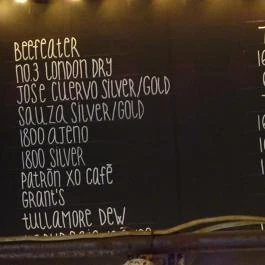 BEEFEATER
NO.3 LONDON DRY
JOSE CUERVO SILVER/GOLD
SAUZA SILVER/GOLD
1800 AJENO
1800 SILVER
PATRŌN XO CAFĒ
GRANT'S
TULLAMORE DEW